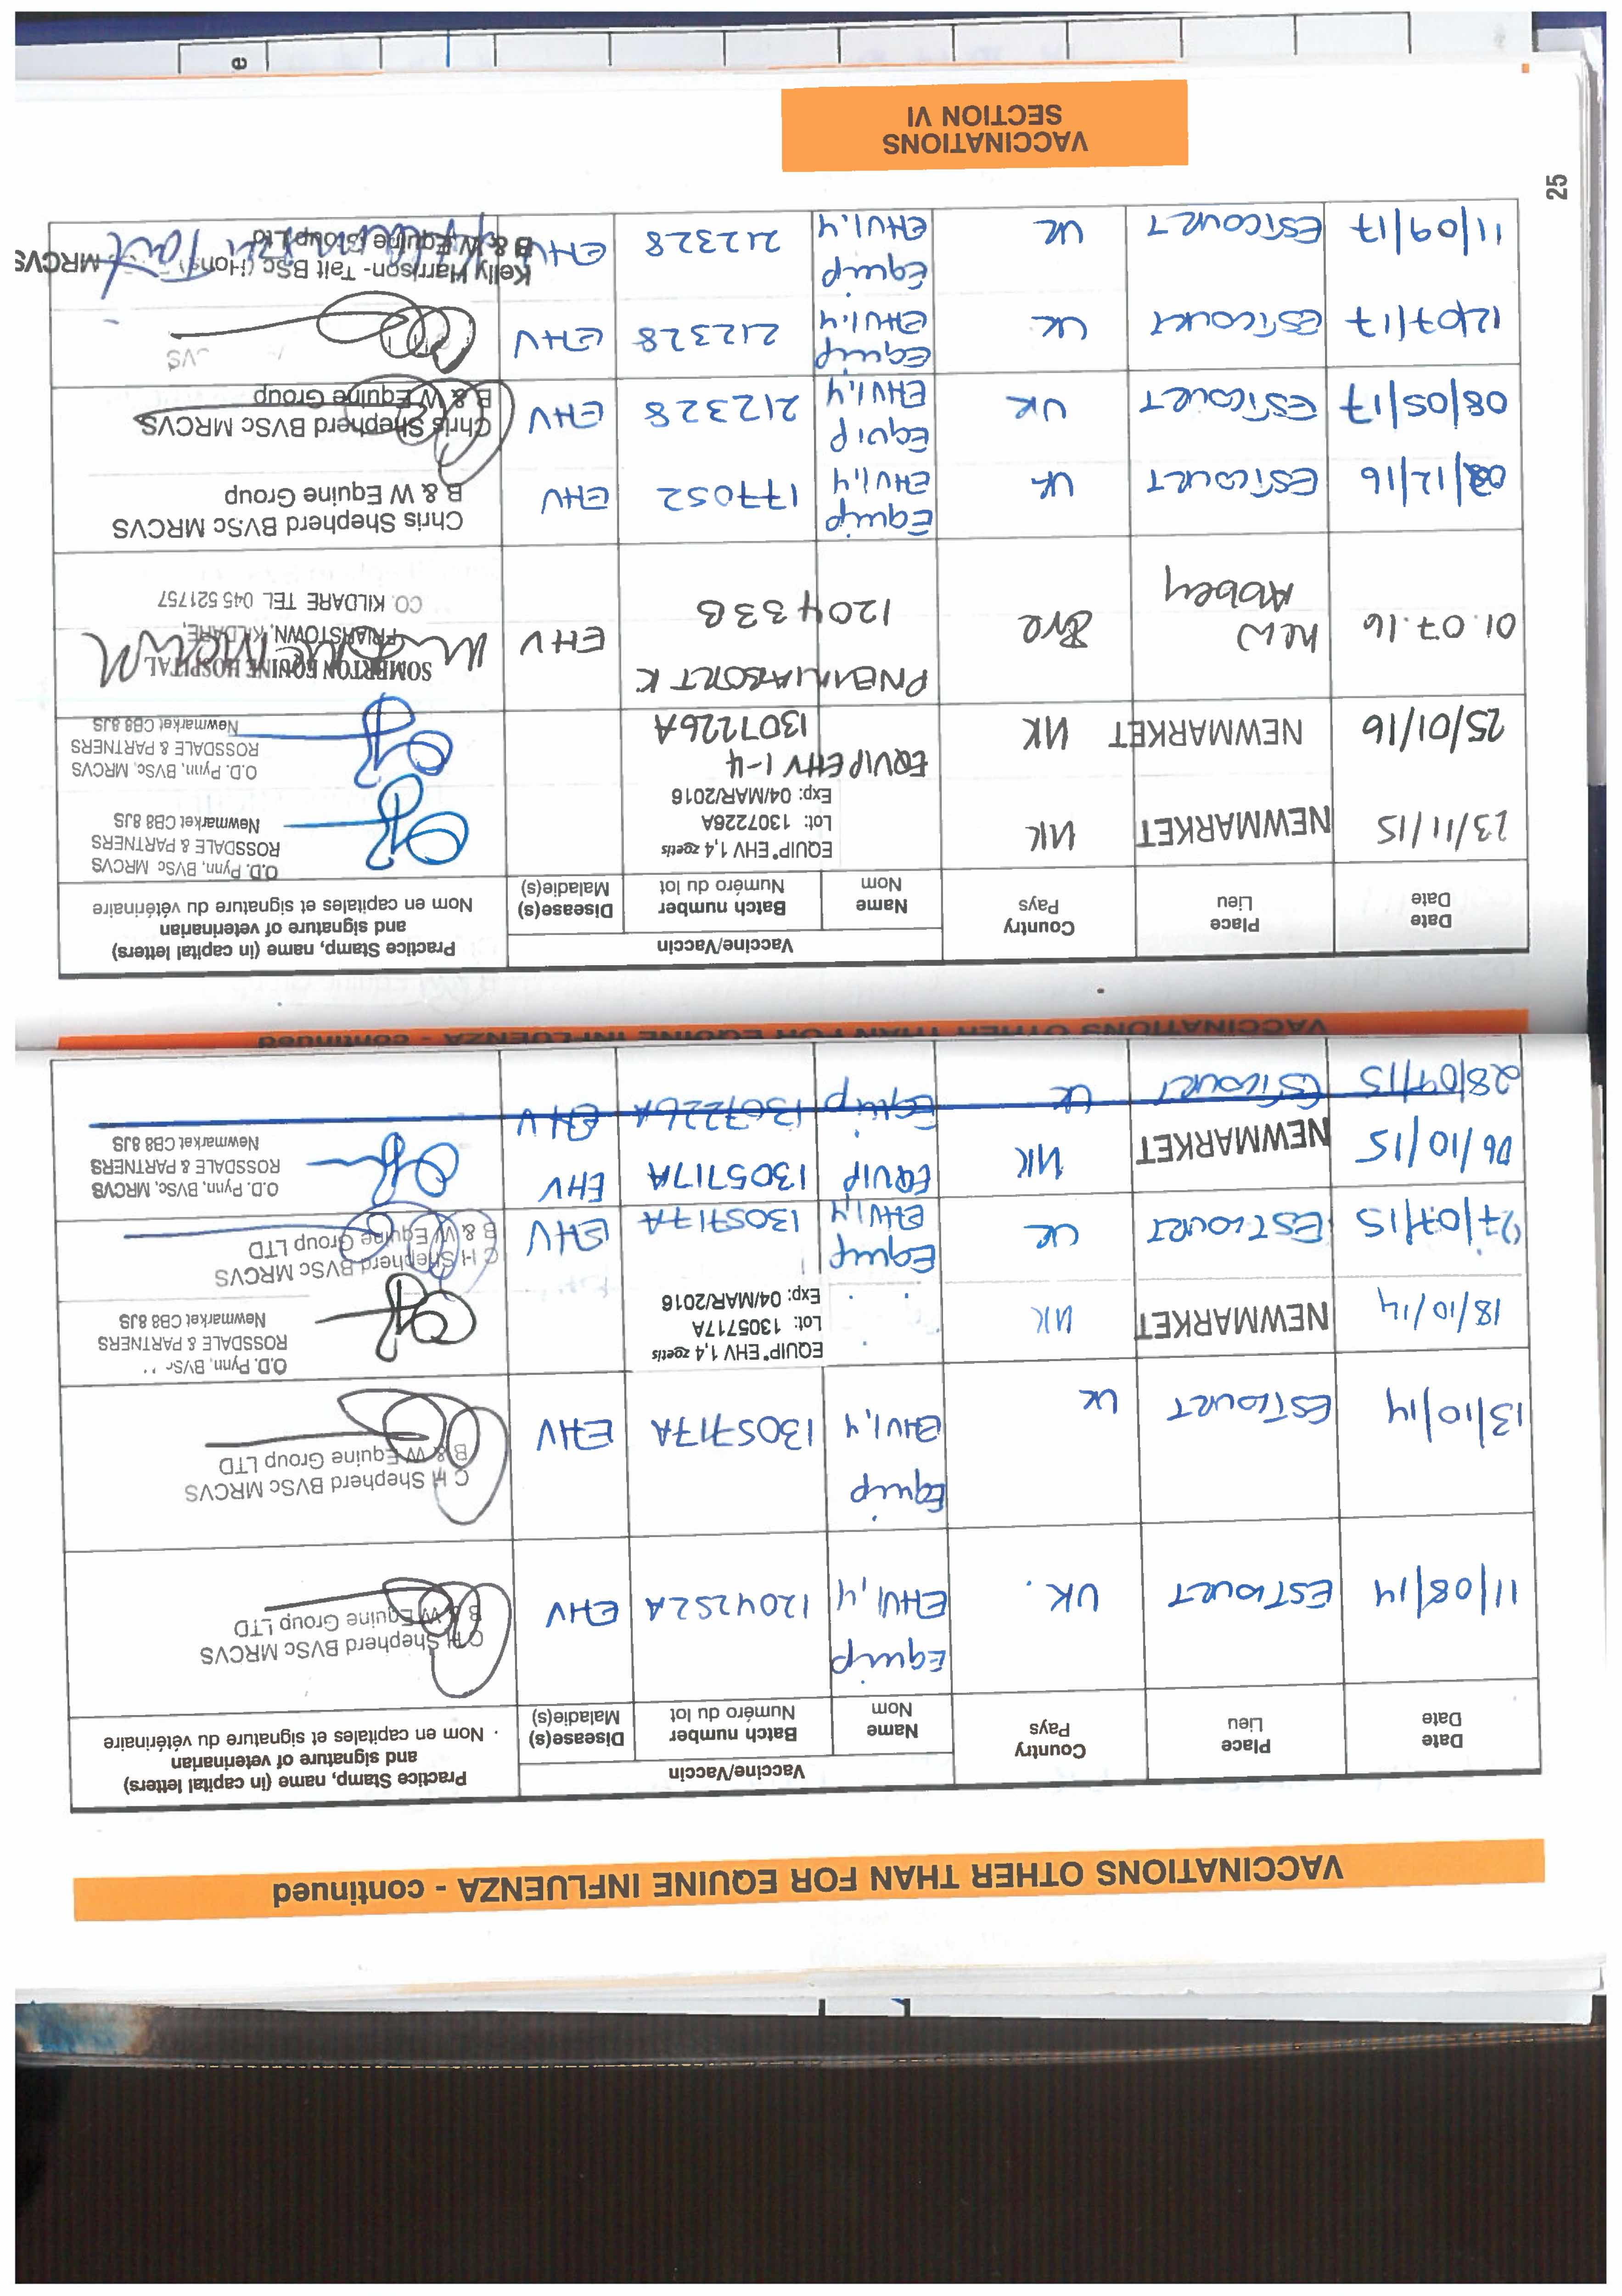 VACCINATIONS OTHER THAN FOR EQUINE INFLUENZA - continued
Date Date
Place Lieu
Country Pays
Vaccine/Vaccin
Name Nom
Batch number Numéro du lot
Disease(s) Maladie(s)
Practice Stamp, name (in capital letters)
and signature of veterinarian
Nom en capitales et signature du vétérinaire
11/08/14 ESTCOURT UK. Equip EHV1,4 1204252A EHV
C H Shepherd BVSc MRCVS
B & W Equine Group LTD
13/10/14 ESTCOURT UK Equip EHV1,4 1305717A EHV
C H Shepherd BVSc MRCVS
B & W Equine Group LTD
18/10/14 NEWMARKET UK
EQUIP® EHV 1,4 zoetis
Lot: 1305717A
Exp: 04/MAR/2016
O.D. Pynn, BVSc
ROSSDALE & PARTNERS
Newmarket CB8 8JS
07/07/15 ESTCOURT UK Equip EHV1,4 1305717A EHV
C H Shepherd BVSc MRCVS
B & W Equine Group LTD
06/10/15 NEWMARKET UK EQUIP 1305717A EHV
O.D. Pynn, BVSc, MRCVS
ROSSDALE & PARTNERS
Newmarket CB8 8JS
28/09/15 ESTCOURT UK Equip 1307226A EHV
VACCINATIONS OTHER THAN FOR EQUINE INFLUENZA - continued
Date Date
Place Lieu
Country Pays
Vaccine/Vaccin
Name Nom
Batch number Numéro du lot
Disease(s) Maladie(s)
Practice Stamp, name (in capital letters)
and signature of veterinarian
Nom en capitales et signature du vétérinaire
23/11/15 NEWMARKET UK
EQUIP® EHV 1,4 zoetis
Lot: 1307226A
Exp: 04/MAR/2016
O.D. Pynn, BVSc MRCVS
ROSSDALE & PARTNERS
Newmarket CB8 8JS
25/01/16 NEWMARKET UK EQUIP EHV 1-4 1307226A
O.D. Pynn, BVSc, MRCVS
ROSSDALE & PARTNERS
Newmarket CB8 8JS
01.07.16 New Abbey Eire PNEUMABORT K 120433B EHV
SOMERTON EQUINE HOSPITAL
FRIARSTOWN, KILDARE,
CO. KILDARE TEL 045 521757
08/12/16 ESTCOURT UK Equip EHV1,4 177052 EHV
Chris Shepherd BVSc MRCVS
B & W Equine Group
08/05/17 ESTCOURT UK Equip EHV1,4 212328 EHV
Chris Shepherd BVSc MRCVS
B & W Equine Group
12/07/17 ESTCOURT UK Equip EHV1,4 212328 EHV
11/09/17 ESTCOURT UK Equip EHV1,4 212328 EHV
Kelly Harrison- Tait BSc (Hons) MRCVS
B & W Equine Group Ltd
25
VACCINATIONS
SECTION VI